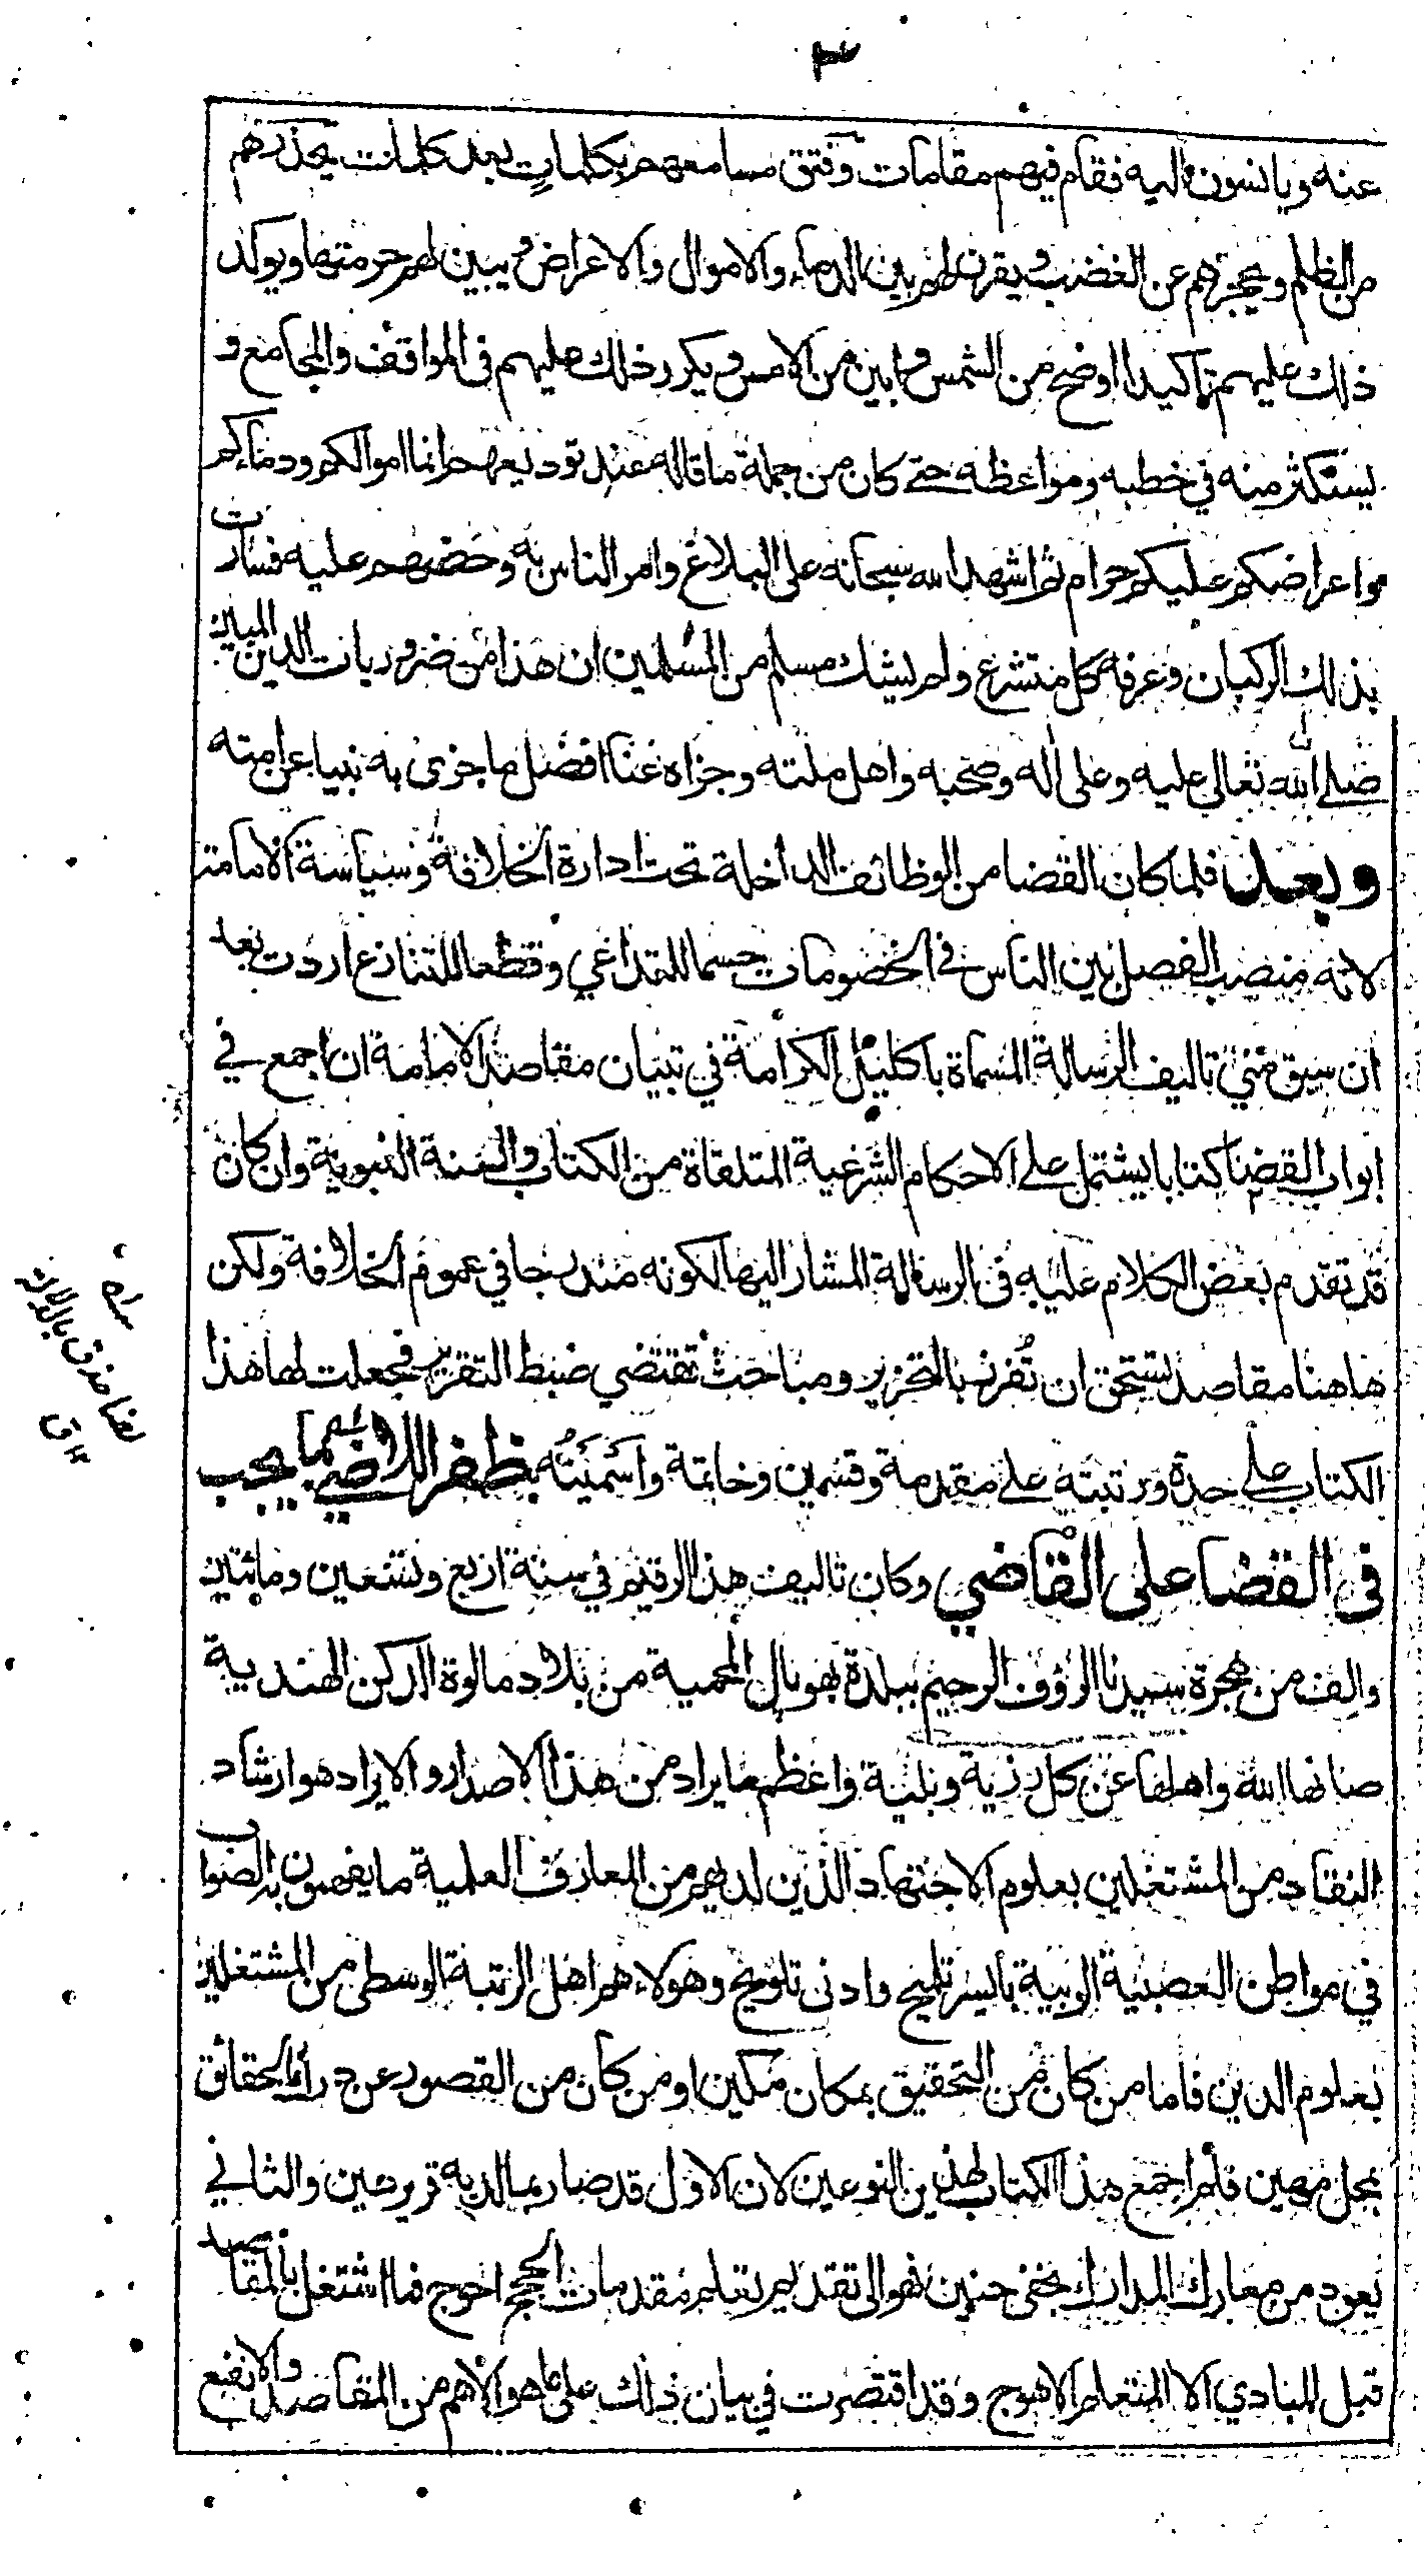 ٣
عنه ويانسون اليه فقام فيهم مقامات وفتق مسامعهم بكلمات بعد كلمات يحذرهم
من الظلم ويحجزهم عن الغضب ويقرن لهم بين الدماء والاموال والاعراض ويبين لهم حرمتها ويوكد
ذلك عليهم تاكيدا اوضح من الشمس وابين من الامس ويكرر ذلك عليهم في المواقف والمجامع و
يستكثر منه في خطبه ومواعظه حتى كان من جملة ما قاله عند توديعهم انما اموالكم ودماءكم
واعراضكم عليكم حرام ثم اشهد الله سبحانه على البلاغ وامر الناس به وحضهم عليه فسارت
بذلك الركبان وعرفه كل متشرع ولم يشك مسلم من المسلمين ان هذا من ضروريات الدين المبين
صلى الله تعالى عليه وعلى اله وصحبه واهل ملته وجزاه عنا افضل ما جزى به نبيا عن امته
وبعد فلما كان القضا من الوظائف الداخلة تحت ادارة الخلافة وسياسة الامامة
لانه منصب الفصل بين الناس في الخصومات حسما للتداعي وقطعا للتنازع اردت بعد
ان سبق مني تاليف الرسالة المسماة باكليل الكرامة في تبيان مقاصد الامامة ان اجمع في
ابواب القضا كتابا يشتمل على الاحكام الشرعية المتلقاة من الكتاب والسنة النبوية وان كان
قد تقدم بعض الكلام عليه في الرسالة المشار اليها لكونه مندرجا في عموم الخلافة ولكن
هاهنا مقاصد تستحق ان تفرد بالتحرير ومباحث تقتضي ضبط التقرير فجعلت لها هذا
الكتاب على حدة ورتبته على مقدمة وقسمين وخاتمة واسميته بظفر اللاضي بما يجب
في القضا على القاضي وكان تاليف هذا الرقيم في سنة اربع وتسعين ومائتين
والف من هجرة سيدنا الرؤف الرحيم ببلدة بهوپال المحمية من بلاد مالوة الدكن الهندية
صانها الله واهلها عن كل رزية وبلية واعظم ما يراد من هذا الاصدار والايراد هو ارشاد
النقاد من المشتغلين بعلوم الاجتهاد الذين لديهم من المعارف العلمية ما يفهمون به الصواب
في مواطن العصبية الوبية بايسر تلميح وادنى تلويح وهولاء هم اهل الرتبة الوسطى من المشتغلين
بعلوم الدين فاما من كان من التحقيق بمكان مكين او من كان من القصور عن درك الحقائق
بمحل مهين فلم اجمع هذا الكتاب لهذين النوعين لان الاول قد صار بما لديه قرير عين والثاني
يعود من معارك المدارك بخفي حنين فهو الى تقديم تعلم مقدمات الحجج احوج فما اشتغل بالمقاصد
قبل المبادي الا المتعلم الاهوج وقد اقتصرت في بيان ذلك على ما هو الاهم من المقاصد والانفع